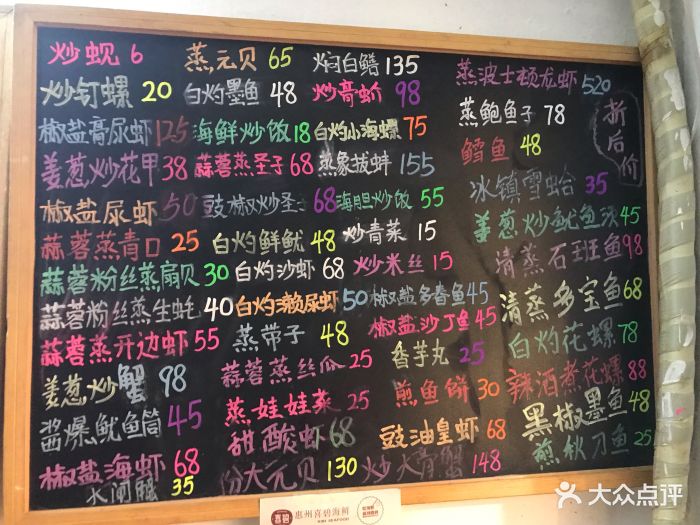 炒蚬 6
炒钉螺 20
椒盐膏尿虾 125
姜葱炒花甲 38
椒盐尿虾 50
蒜蓉蒸青口 25
蒜蓉粉丝蒸扇贝 30
蒜蓉粉丝蒸生蚝 40
蒜蓉蒸开边虾 55
姜葱炒蟹 98
酱爆鱿鱼筒 45
椒盐海虾 68
水闸蟹 35
蒸元贝 65
白灼墨鱼 48
海鲜炒饭 18
蒜蓉蒸圣子 68
豉椒炒圣子 68
白灼鲜鱿 48
白灼沙虾 68
白灼濑尿虾 50
蒸带子 48
蒜蓉蒸丝瓜 25
蒸娃娃菜 25
甜酸虾 68
份大元贝 130
焖白鳝 135
炒膏蚧 98
白灼小海螺 75
蒸象拔蚌 155
海胆炒饭 55
炒青菜 15
炒米丝 15
椒盐多春鱼 45
椒盐沙丁鱼 45
香芋丸 25
煎鱼饼 30
豉油皇虾 68
炒大膏蟹 148
蒸波士顿龙虾 520
蒸鲍鱼子 78
鱈鱼 48
冰镇雪蛤 35
姜葱炒鱿鱼须 45
清蒸石班鱼 98
清蒸多宝鱼 68
白灼花螺 78
辣酒煮花螺 88
黑椒墨鱼 48
煎秋刀鱼 25
折后价
喜碧
惠州喜碧海鲜
大众点评